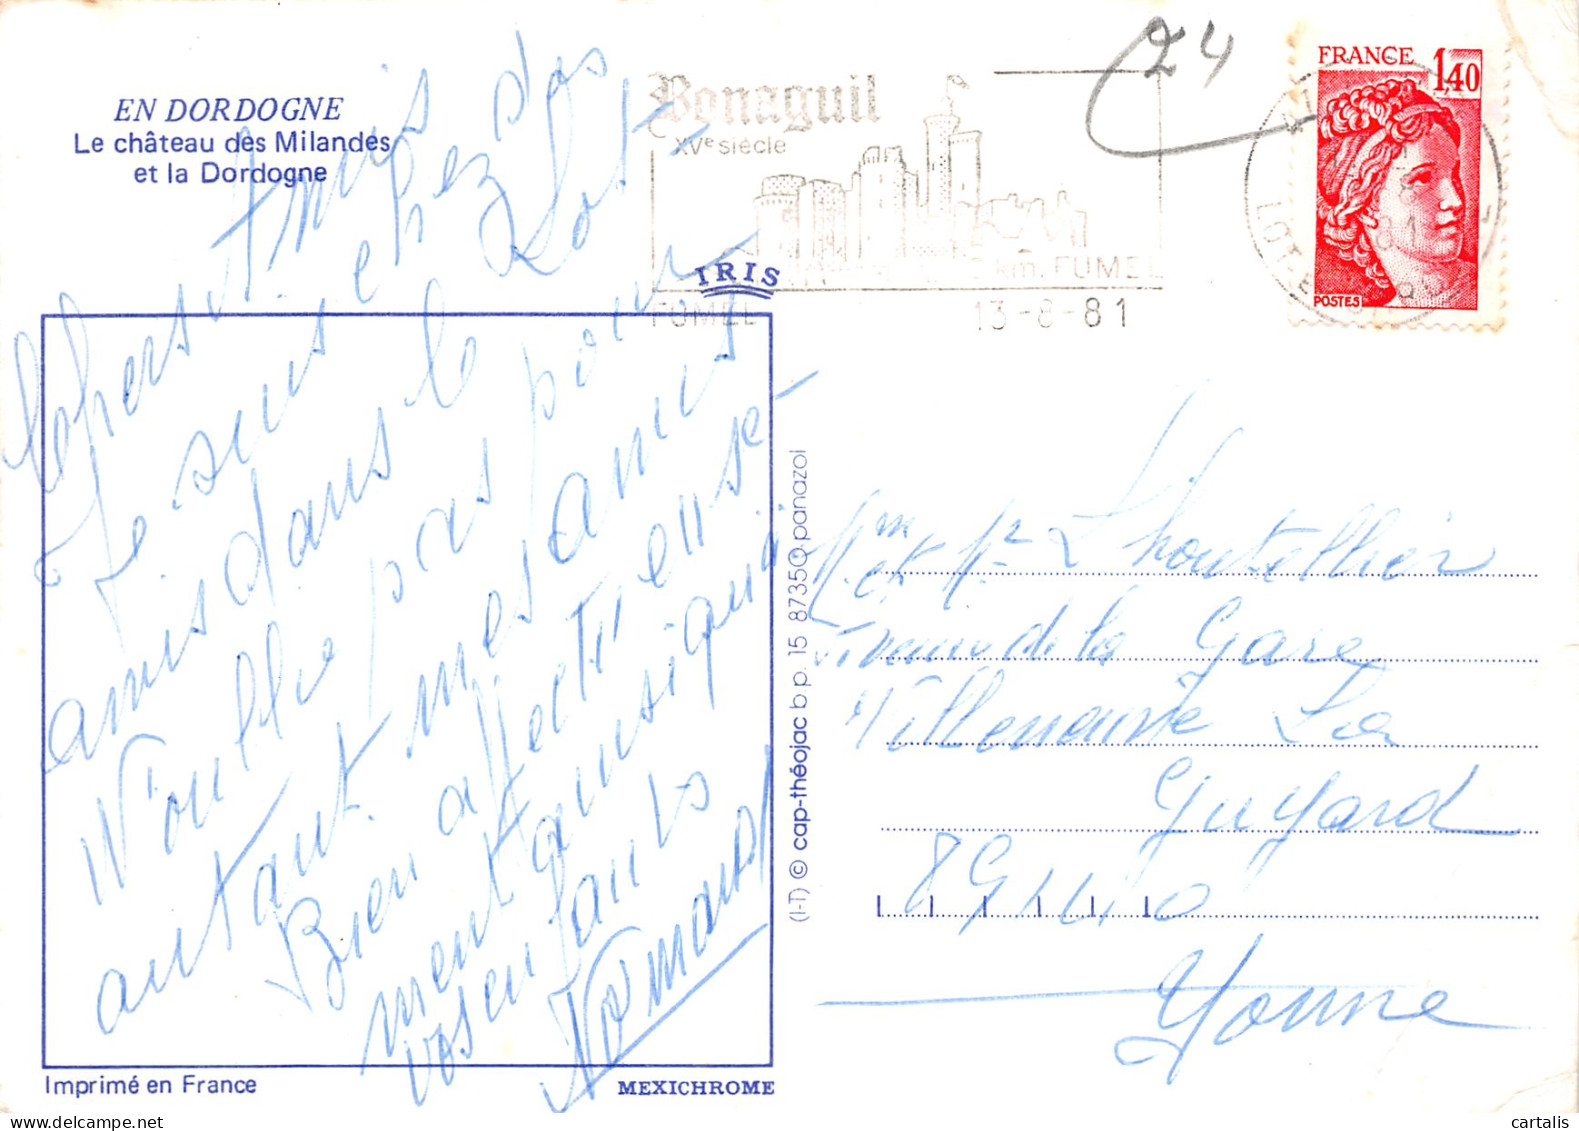 24
FRANCE
1,40
POSTES
EN DORDOGNE
Le château des Milandes
et la Dordogne
Bonaguil
XVe siècle
km. FUMEL
FUMEL 13-8-81
LOT-E
IRIS
chers Amis
Je suis chez des
amis dans le Lot
N'oublie pas pour
autant mes amis
Bien affectieuse-
ment ainsi qu'à
vos enfants
Normand
(I-T) © cap-théojac b p. 15 87350 panazol
Mme et Mr L'houtellier
Avenue de la Gare
Villeneuve La
Guyard
89140
Yonne
Imprimé en France
MEXICHROME
cartalis